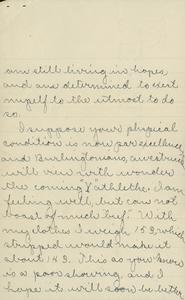 am still living in hopes
and am determined to exert
myself to the utmost to do
so.
I suppose your physical
condition is now par excellency
and Burlingtonians, awestruck
will view with wonder
the coming "athlethe. I am
feeling well, but can not
boast of much beef." With
my clothes I weigh 153, which
stripped would make it
about 143. This as you know
is a poor showing, and I
hope it will soon be better